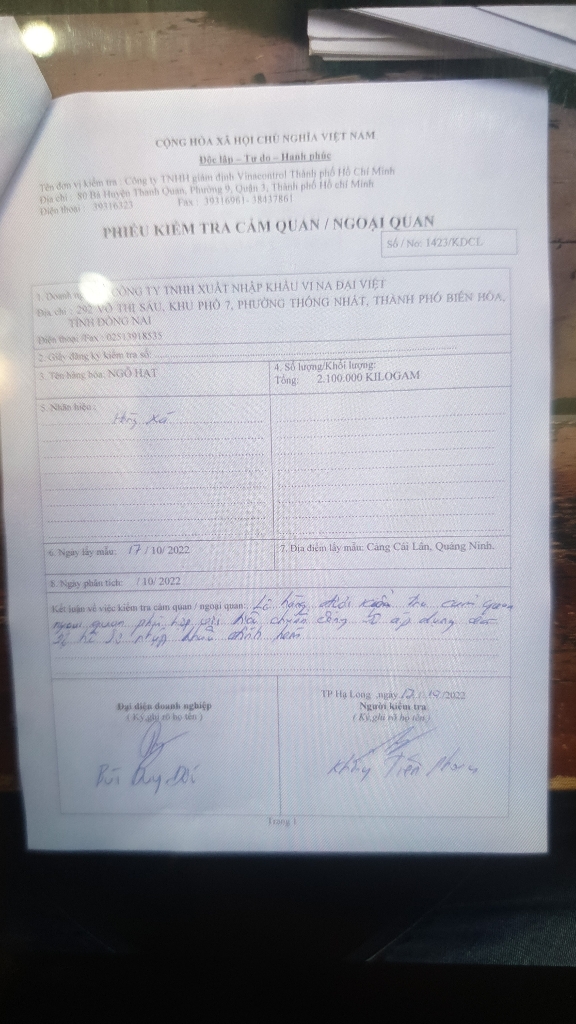 CỘNG HÒA XÃ HỘI CHỦ NGHĨA VIỆT NAM
Độc lập – Tự do – Hạnh phúc
Tên đơn vị kiểm tra : Công ty TNHH giám định Vinacontrol Thành phố Hồ Chí Minh
Địa chỉ : 80 Bà Huyện Thanh Quan, Phường 9, Quận 3, Thành phố Hồ chí Minh
Điện thoại : 39316323 Fax : 39316961- 38437861
PHIẾU KIỂM TRA CẢM QUAN / NGOẠI QUAN
Số / No: 1423/KĐCL
1. Doanh CÔNG TY TNHH XUẤT NHẬP KHẨU VI NA ĐẠI VIỆT
Địa chỉ : 292 VÕ THỊ SÁU, KHU PHỐ 7, PHƯỜNG THỐNG NHẤT, THÀNH PHỐ BIÊN HÒA,
TỈNH ĐỒNG NAI
Điện thoại /Fax : 02513918535
2. Giấy đăng ký kiểm tra số:
3. Tên hàng hóa: NGÔ HẠT
4. Số lượng/Khối lượng:
Tổng: 2.100.000 KILOGAM
5. Nhãn hiệu :
Hàng Xá
6. Ngày lấy mẫu: 17 / 10/ 2022
7. Địa điểm lấy mẫu: Cảng Cái Lân, Quảng Ninh.
8. Ngày phân tích: / 10/ 2022
Kết luận về việc kiểm tra cảm quan / ngoại quan: Lô hàng kiểm tra cảm quan
ngoại quan phù hợp chuẩn công bố áp dụng
hồ sơ nhập khẩu đính kèm
TP Hạ Long ,ngày 17 / 10 /2022
Đại diện doanh nghiệp
( Ký,ghi rõ họ tên )
Người kiểm tra
( Ký,ghi rõ họ tên )
Tiến
Trang 1